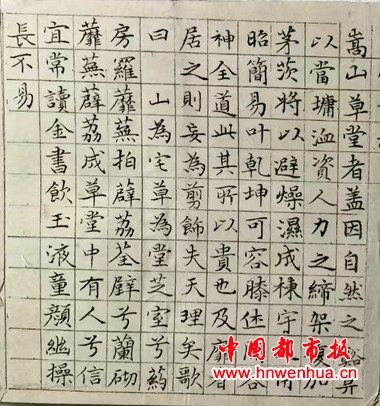 嵩山草堂者盖因自然之谿阜
以當墉洫資人力之締架復加
茅茨將以避燥濕成棟宇
昭簡易叶乾坤可容膝休
神全道此其所以貴也及靡者
居之則妄為剪飾失天理矣歌
曰山為宅草為堂芝室兮葯
房羅蘼蕪拍薜荔荃壁兮蘭砌
蘼蕪薜荔成草堂中有人兮信
宜常讀金書飲玉液童顏幽操
長不易
中国都市报
www.hnwenhua.com.cn